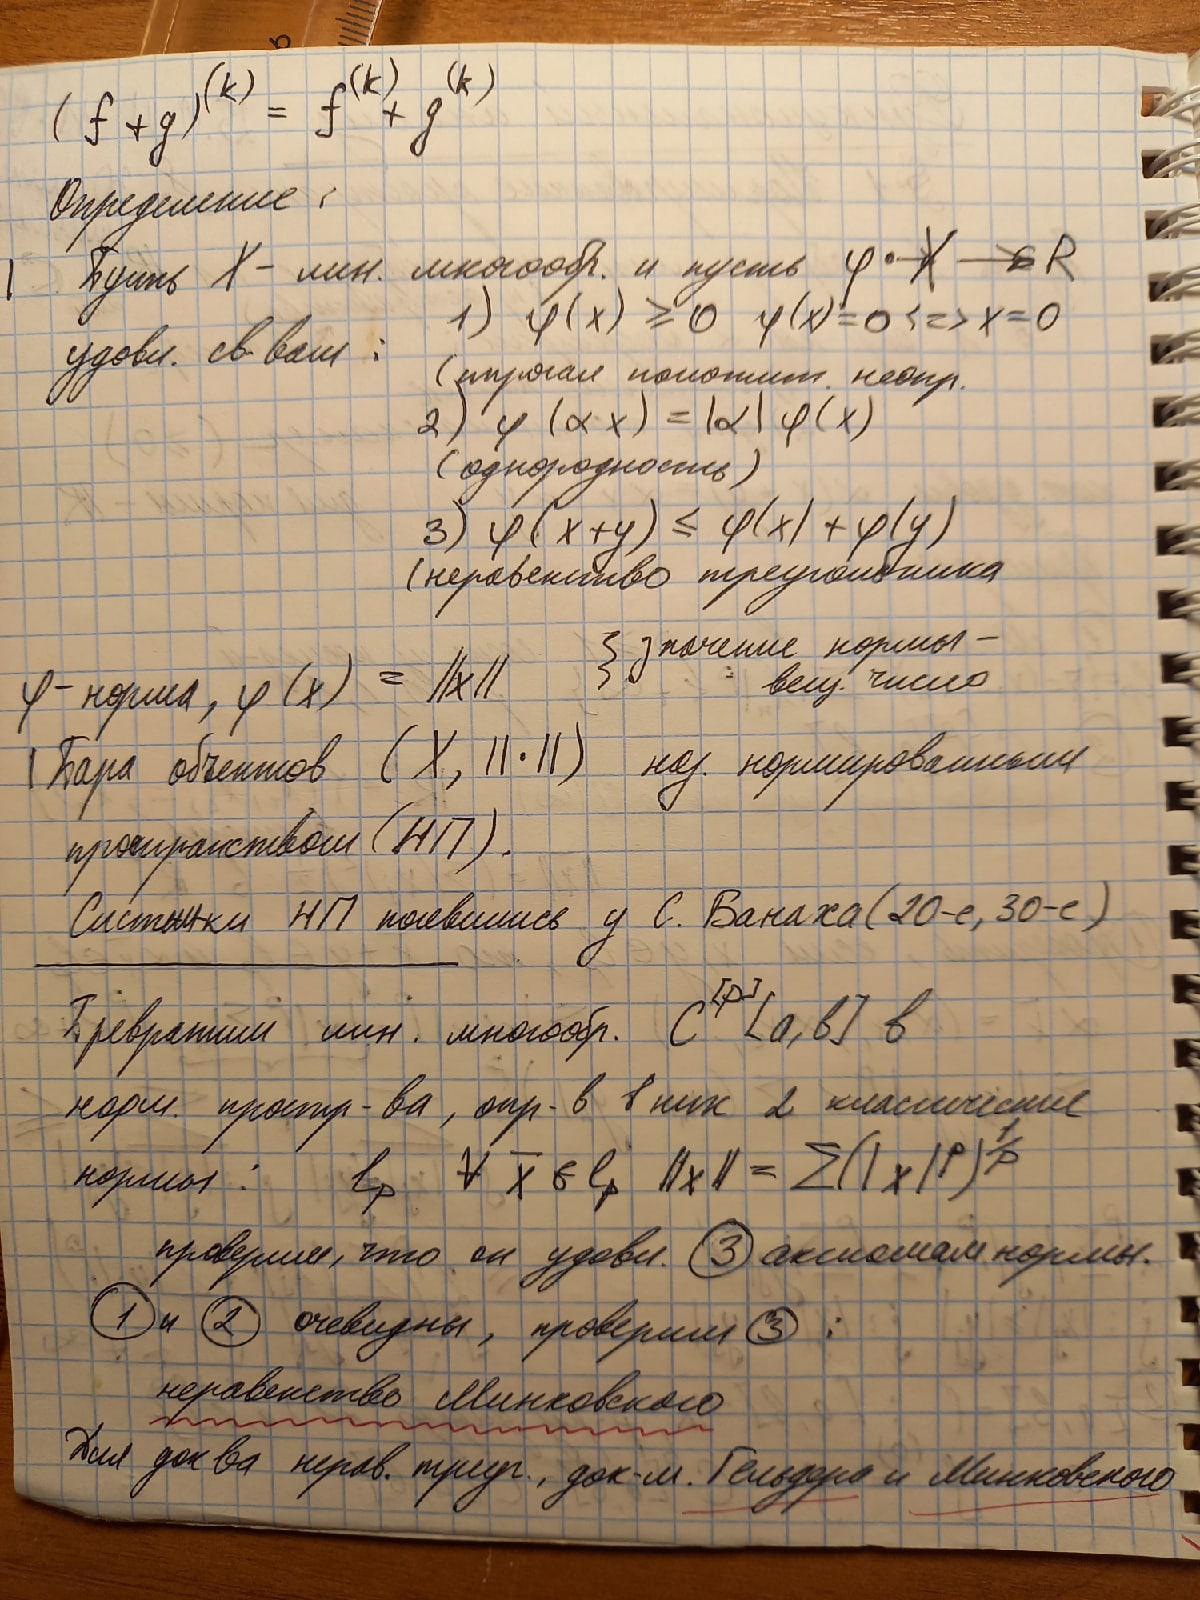 (f + g)^(k) = f^(k) + g^(k)
Определение:
Пусть X - лин. многообр. и пусть φ: X → R
удовл. св-вам: 1) φ(x) ≥ 0 φ(x)=0 <=> x=0
(строгая положит. неопр.
2) φ(αx) = |α| φ(x)
(однородность)
3) φ(x+y) ≤ φ(x) + φ(y)
(неравенство треугольника
φ - норма, φ(x) = ||x|| } значение нормы -
вещ. число
Пара объектов (X, ||·||) наз. нормированным
пространством (НП).
НП появились у С. Банаха (20-е, 30-е)
Превратим лин. многообр. C^[p][a,b] в
норм. простр-ва, опр-в в них 2 классические
нормы: lp ∀ x̄ ∈ lp ||x|| = Σ(|x|^p)^1/p
проверим, что он удовл. ③ аксиомам нормы.
① и ② очевидны, проверим ③:
неравенство Минковского
Для док-ва нерав. треуг., док-м. Гельдера и Минковского